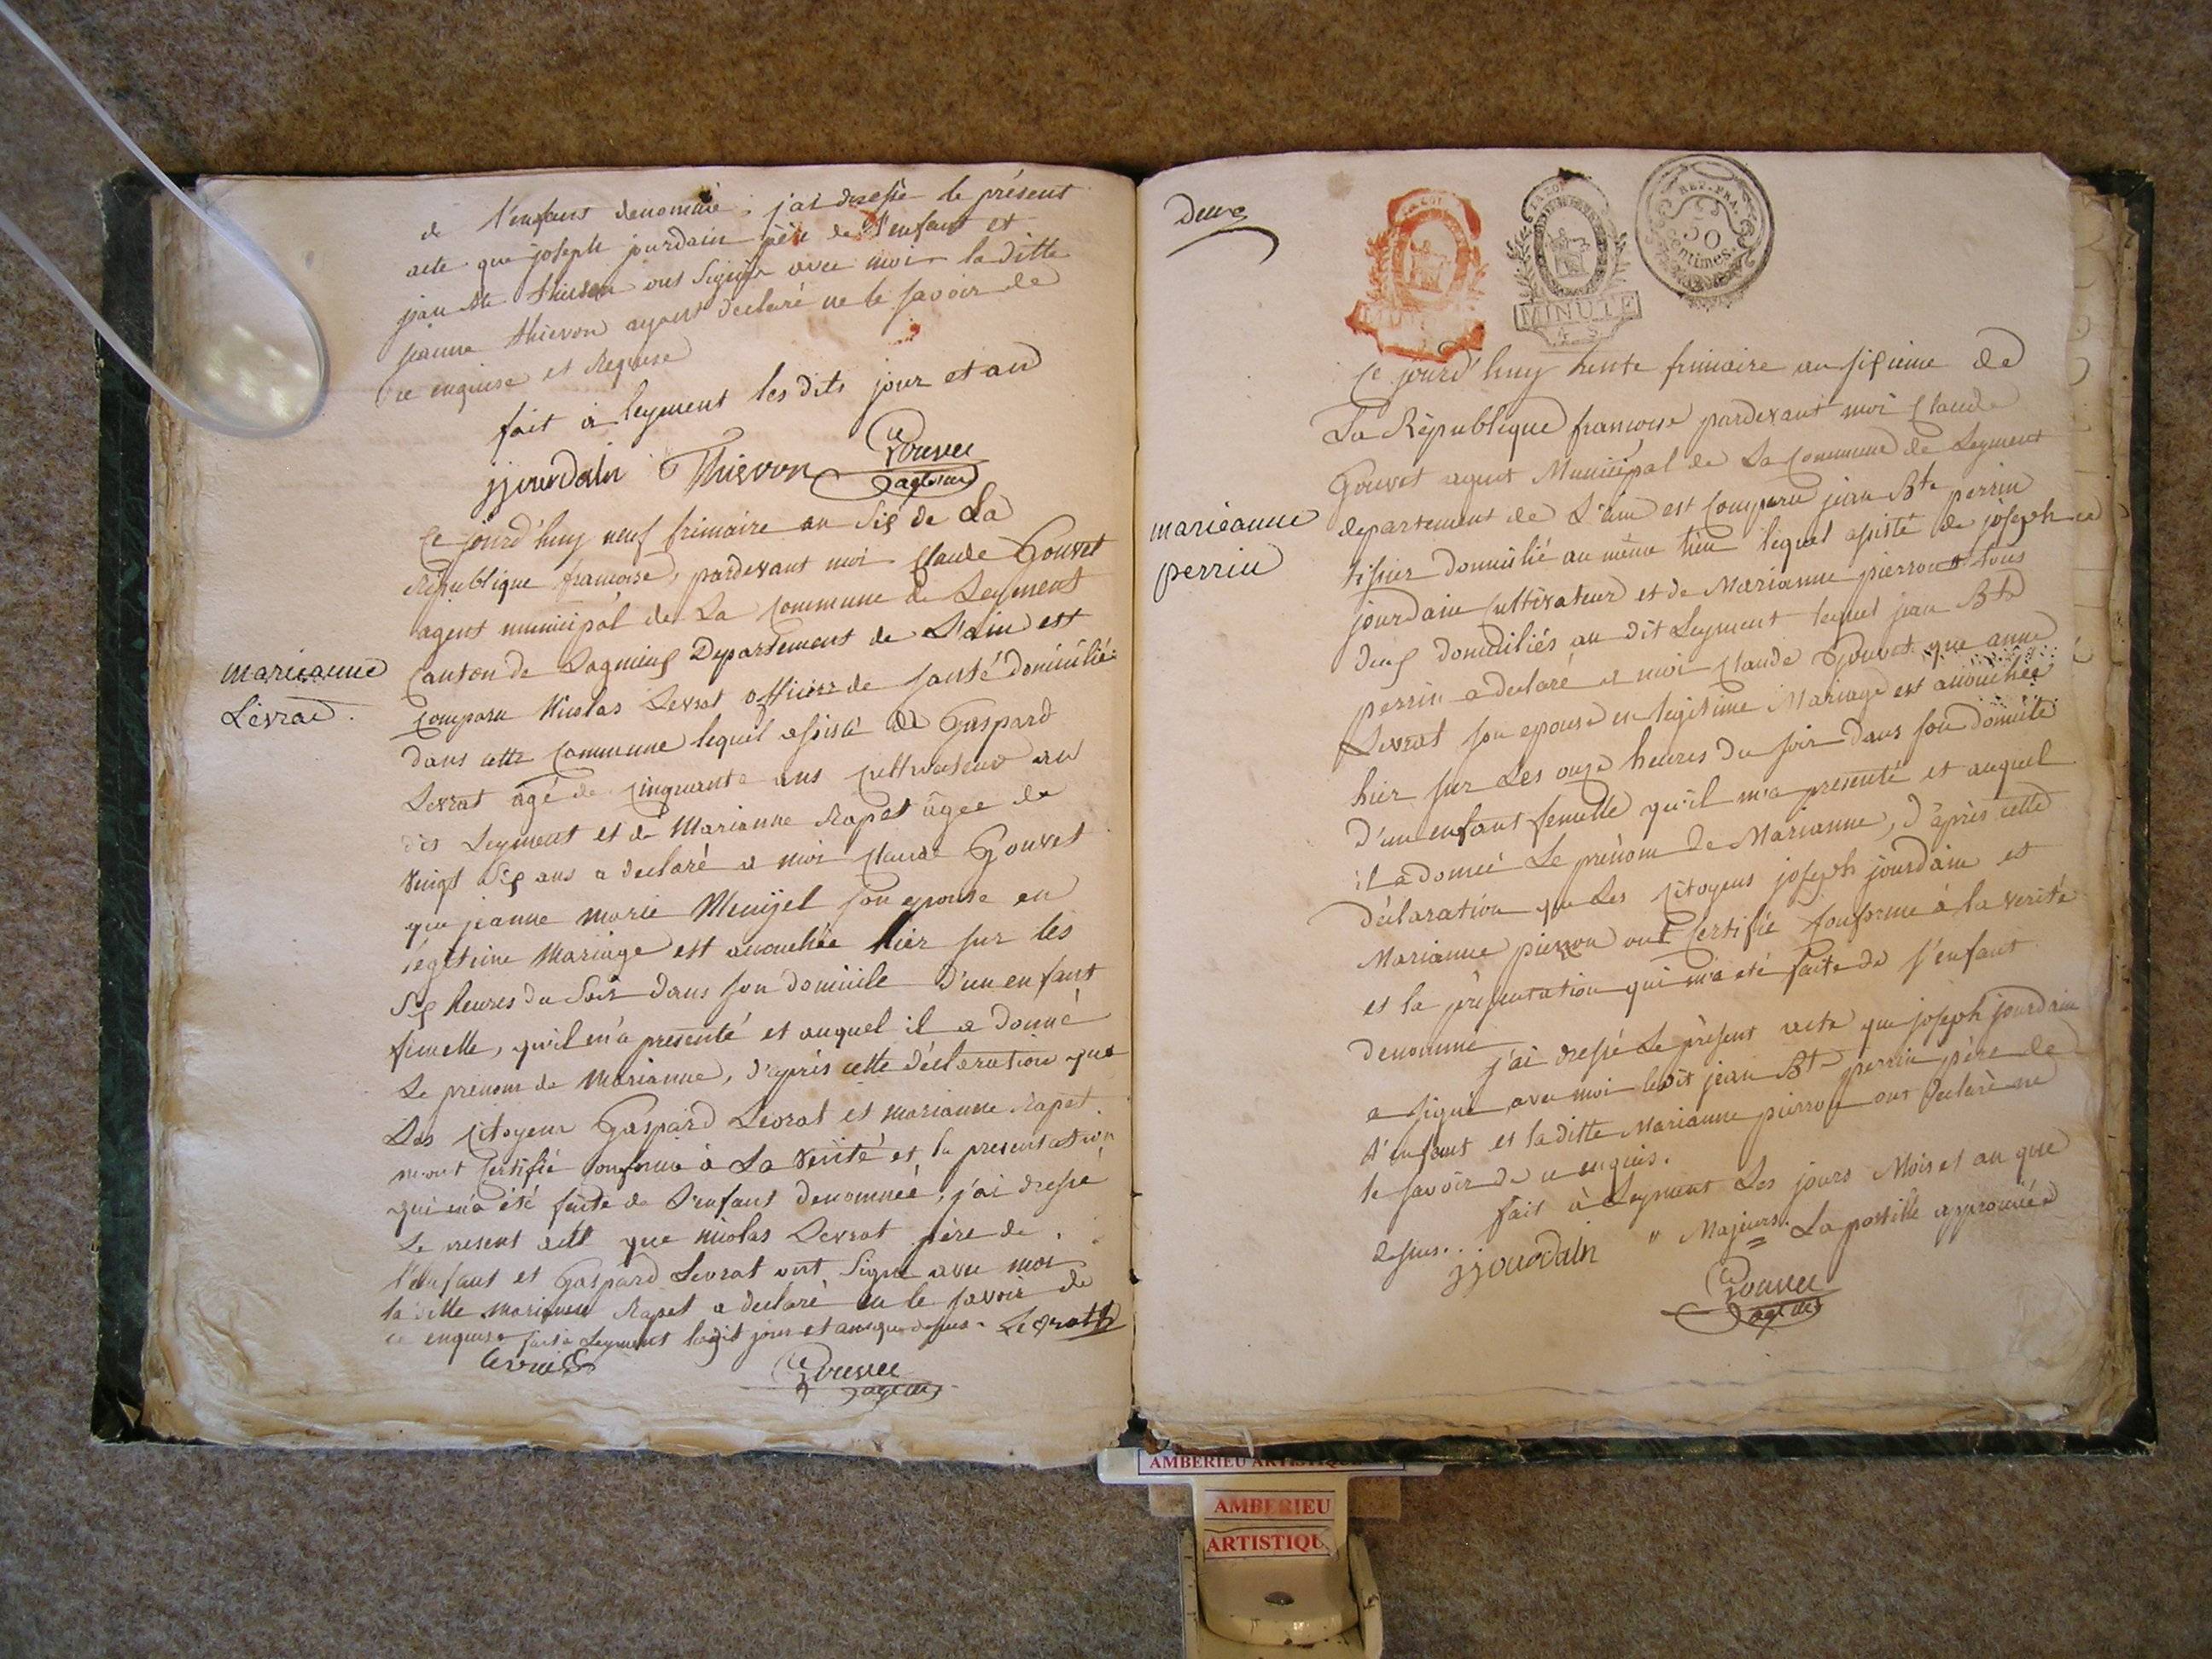 de l'enfant denommé, j'ai dressé le présent
acte que joseph jourdain père de l'enfant et
jean Bte thievon ont signés avec moi la ditte
jeanne thievon ayant declaré ne le savoir de
ce enquise et Requise
fait à leyment les dits jour et an
jjourdain Thievon Gouvet
agent
marieanne
Levrat.
Ce jourd'huy neuf frimaire an Six de La
République françoise, pardevant moi Claude Gouvet
agent municipal de La Commune de Leyment
Canton de Lagnieux Departement de L'ain est
comparu Nicolas Levrat officier de santé domicilié
dans cette Commune lequel assisté de Gaspard
Levrat agé de cinquante ans cultivateur au
dit Leyment et de Marianne Rapet âgée de
vingt Six ans a declaré a moi Claude Gouvet
que jeanne marie son epouse en
légitime Mariage est accouchée hier sur les
Six heures du Soir dans son domicile d'un enfant
femelle, qu'il m'a presenté et auquel il a donné
Le prenom de Marianne, d'après cette déclaration que
Les Citoyens Gaspard Levrat et marianne Rapet
m'ont Certifié conforme à La Vérité et la presentation
qui m'a été faite de L'enfant denommée, j'ai dressé
Le present acte que nicolas Levrat père de
l'enfant et Gaspard Levrat ont Signé avec moi
la ditte marianne Rapet a declaré ne le savoir de
ce enquise fait à Leyment ledit jour et an que dessus. Levrat
Levrat Gouvet
agent
Deux
LA LOI
MINUTE
4. S.
REP. FRA.
50
centimes.
Ce jourd'huy trente frimaire an sixième de
La République françoise pardevant moi Claude
Gouvet agent Municipal de La Commune de Leyment
departement de L'ain est comparu jean Bte perrin
marieanne
perrin
tissier domicilié au même lieu lequel assisté de joseph
jourdain cultivateur et de Marianne pierron tous
deux domiciliés au dit Leyment lequel jean Bte
perrin a declaré a moi Claude Gouvet que anne
Levrat son epouse en legitime Mariage est accouchée
hier sur Les onze heures du soir dans son domicile
d'un enfant femelle qu'il m'a presenté et auquel
il a donné Le prénom de Marianne, d'après cette
déclaration que Les Citoyens joseph jourdain et
Marianne pierron ont Certifié conforme à la verité
et la présentation qui m'a eté faite de l'enfant
denommé
j'ai dressé Le présent acte que joseph jourdain
a signé avec moi ledit jean Bt perrin père de
L'enfant et laditte Marianne pierron ont declaré ne
le savoir de ce enquis.
fait à Leyment Les jours Mois et an que
dessus. " Majeurs. La postille approuvée
jjourdain
Gouvet
agent
AMBERIEU ARTISTIQUE
AMBERIEU
ARTISTIQU